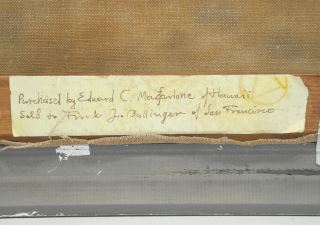 Purchased by Edward C. Macfarlane of Hawaii.
Sold to Frank J. Bullinger of San Francisco